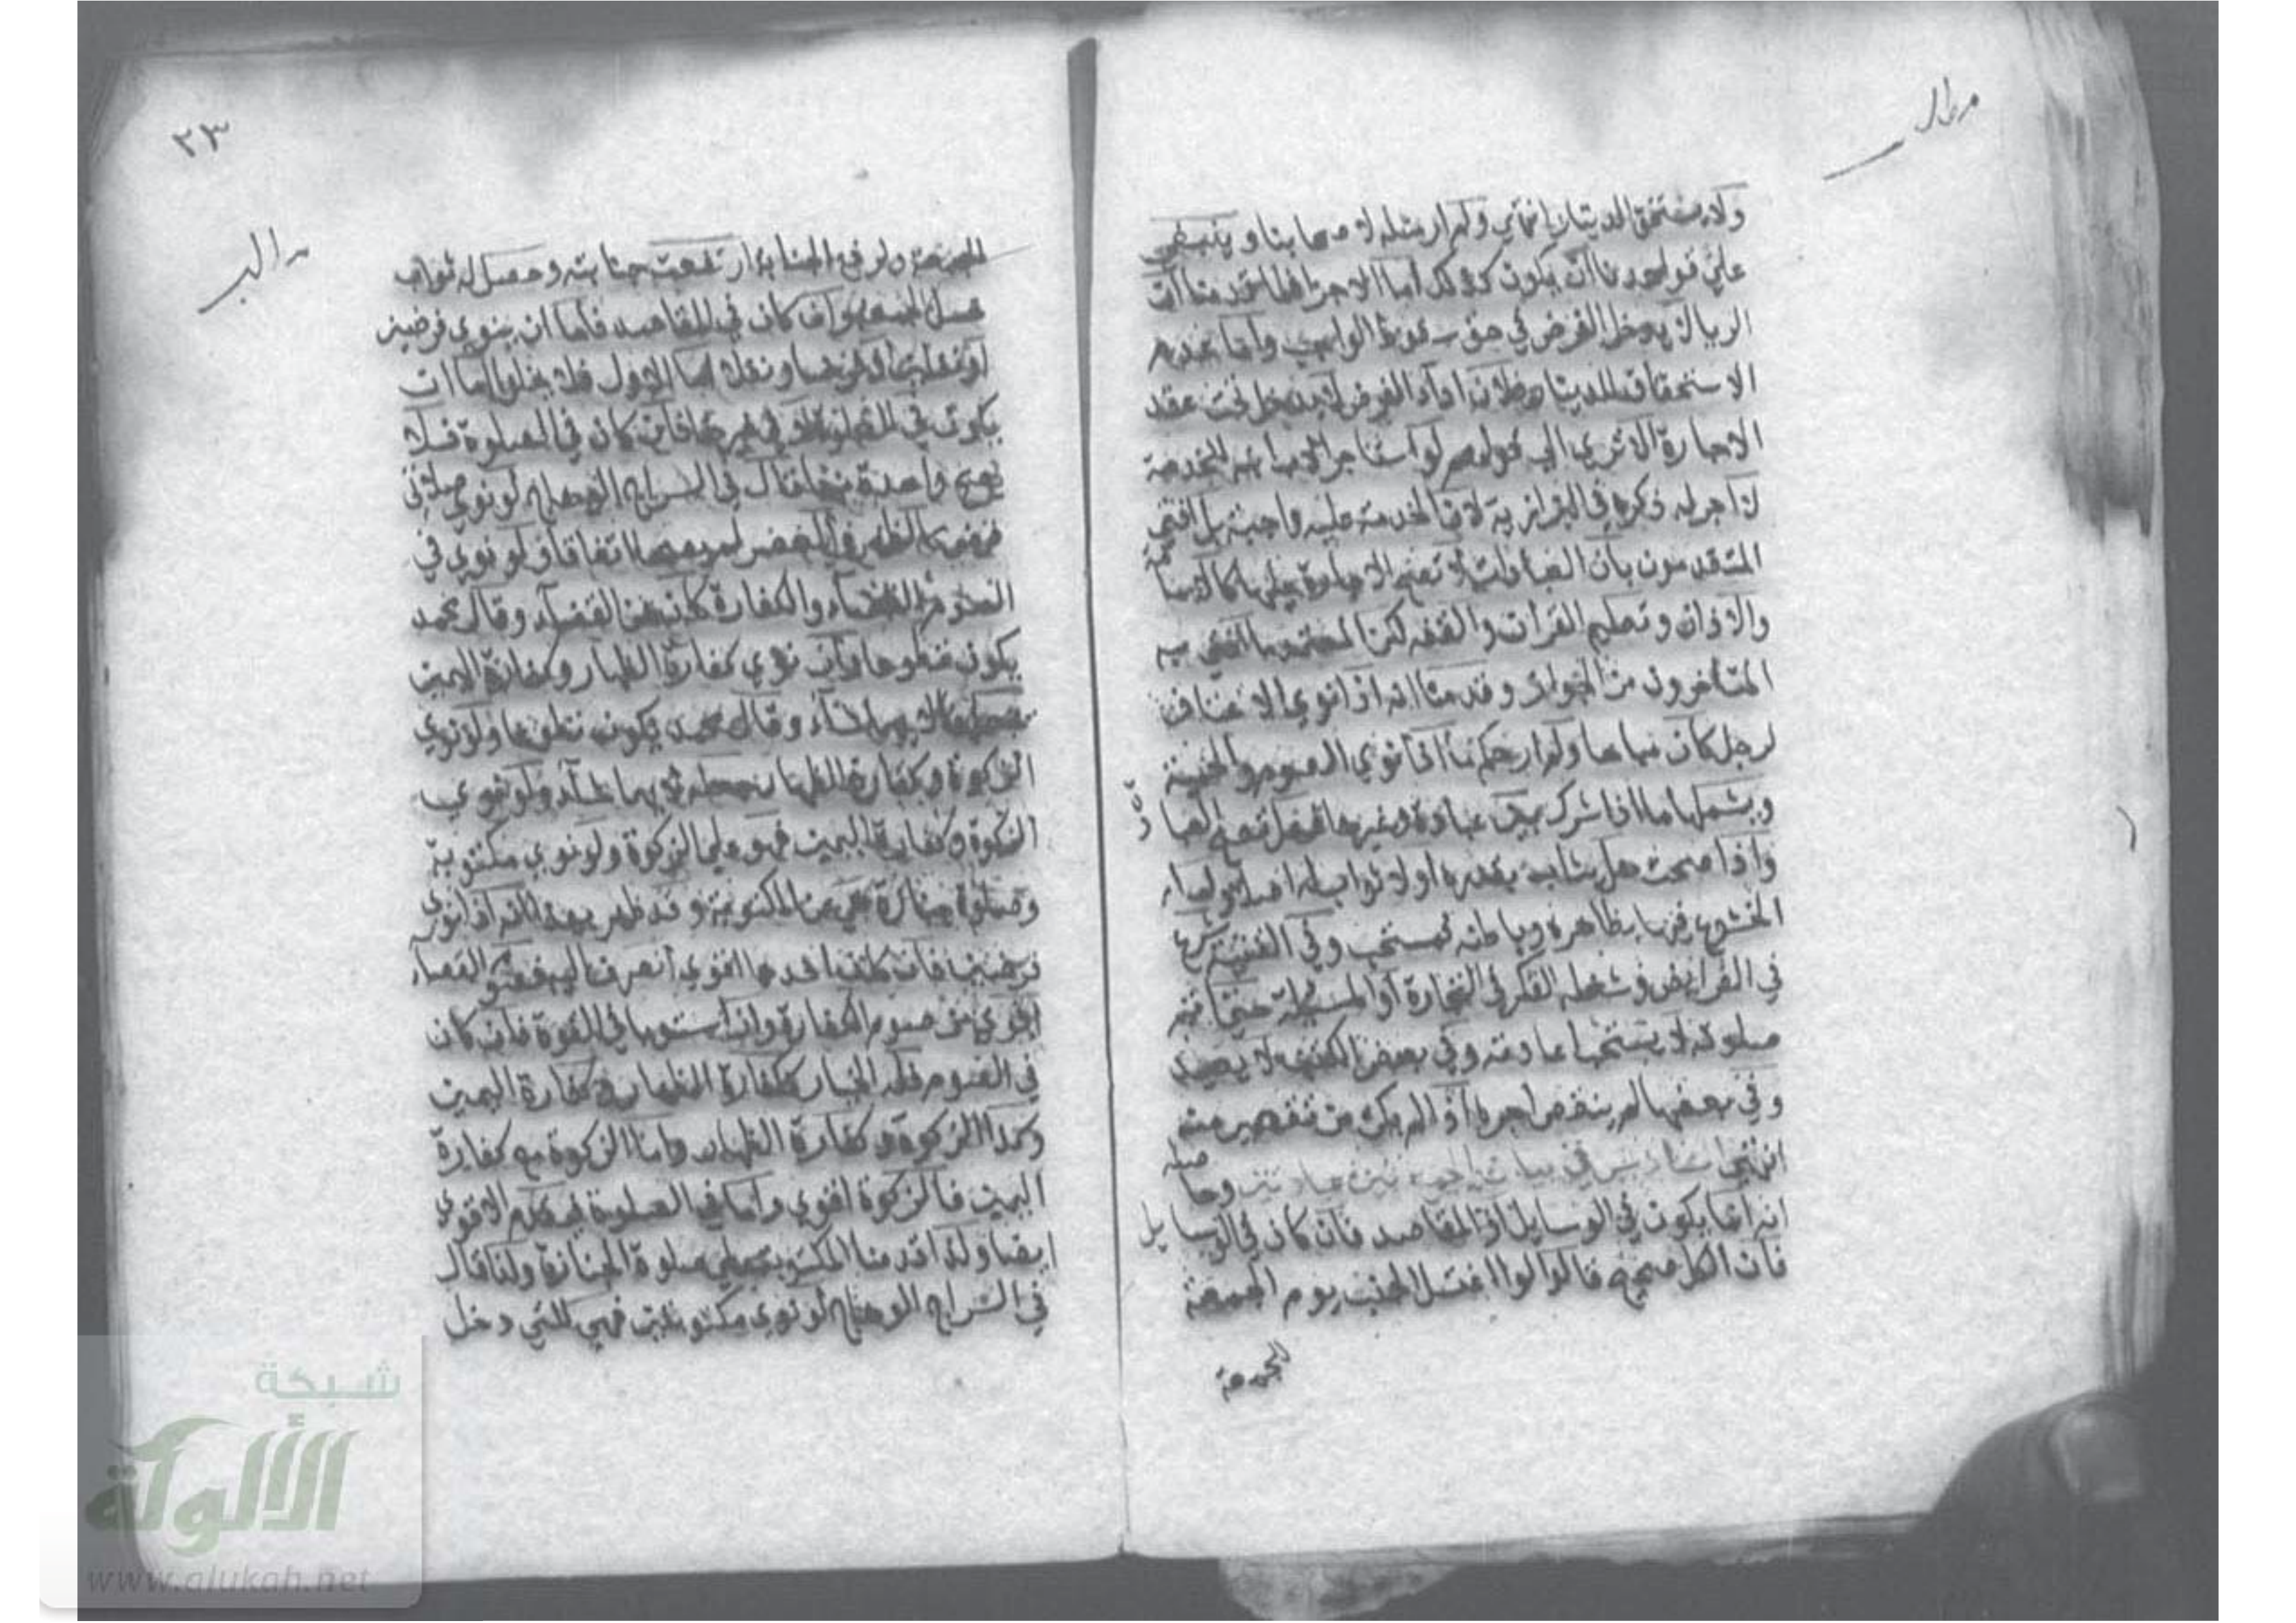 ولا يستحق الدينار انتهى ولم ار مثله لاصحابنا وينبغي
على قواعدنا ان يكون كذلك اما الاجزا فلما قدمنا ان
الريا لا يدخل الفرض في حق سقوط الواجب واما عدم
الاستحقاق للدينار فلان اداء الفرض لا يدخل تحت عقد
الاجارة الا تري الى قولهم لو استاجر الاب ابنه للخدمة
لا اجر له ذكره في البزازية لان الخدمة عليه واجبة بل افتى
المتقدمون بان العبادات لا تصح الاجارة عليها كالامامة
والاذان وتعليم القران والفقه لكن المعتمد ما افتى به
المتاخرون من الجواز وقدمنا انه اذا نوي الاعتاق
لرجل كان مباحا ولم ار حكم ما اذا نوي الصوم والحمية
ويشملها ما اذا شرك بين عبادة وغيرها فهل تصح العبا
واذا صحت هل يثاب بقدره او لا ثواب له اصلا واما
الخشوع فيها بظاهره وباطنه فمستحب وفي القنية شرع
في الفرايض وشغله الفكر في التجارة او المسئلة حتى اتم
صلوته لا يستحب اعادته وفي بعض الكتب لا يعيد
وفي بعضها لم ينقص اجره اذا لم يكن من تقصير منه
انتهى السادس في بيان الجمع بين عبادتين وحاصله
انه اما يكون في الوسايل او المقاصد فان كان في الوسايل
فان الكل صحيح قالوا لو اغتسل الجنب يوم الجمعة
للجمعة
٢٣
للجمعة ولرفع الجنابة ارتفعت جنابته وحصل له ثواب
غسل الجمعة وان كان في المقاصد فاما ان ينوي فرضين
او نفلين او فرضا ونفلا اما الاول فلا يخلو اما ان
يكون في الصلوة او في غيرها فان كان في الصلوة فلا
تصح واحدة منهما قال في السراج الوهاج لو نوي صلاتي
فرض كالظهر والعصر لم يصحا اتفاقا ولو نوي في
الصوم القضاء والكفارة كان عن القضاء وقال محمد
يكون تطوعا وان نوي كفارة الظهار وكفارة اليمين
يجعل لايهما شاء وقال محمد يكون تطوعا ولو نوي
الزكوة وكفارة الظهار جعله لايهما شاء ولو نوي
الزكوة وكفارة اليمين فهو على الزكوة ولو نوي مكتوبة
وصلوة جنازة فهي عن المكتوبة وقد ظهر بهذا انه اذا نوي
فرضين فان كان احدهما اقوي انصرف اليه فصوم القضاء
اقوي من صوم الكفارة وان استويا في القوة فان كان
في الصوم فله الخيار ككفارة الظهار وكفارة اليمين
وكذا الزكوة وكفارة الظهار واما الزكوة مع كفارة
اليمين فالزكوة اقوي واما في الصلوة فيقدم الاقوي
ايضا ولذا قدمنا المكتوبة على صلوة الجنازة ولذا قال
في السراج الوهاج لو نوي مكتوبتين فهي للتي دخل
شبكة
الألوكة
www.alukah.net